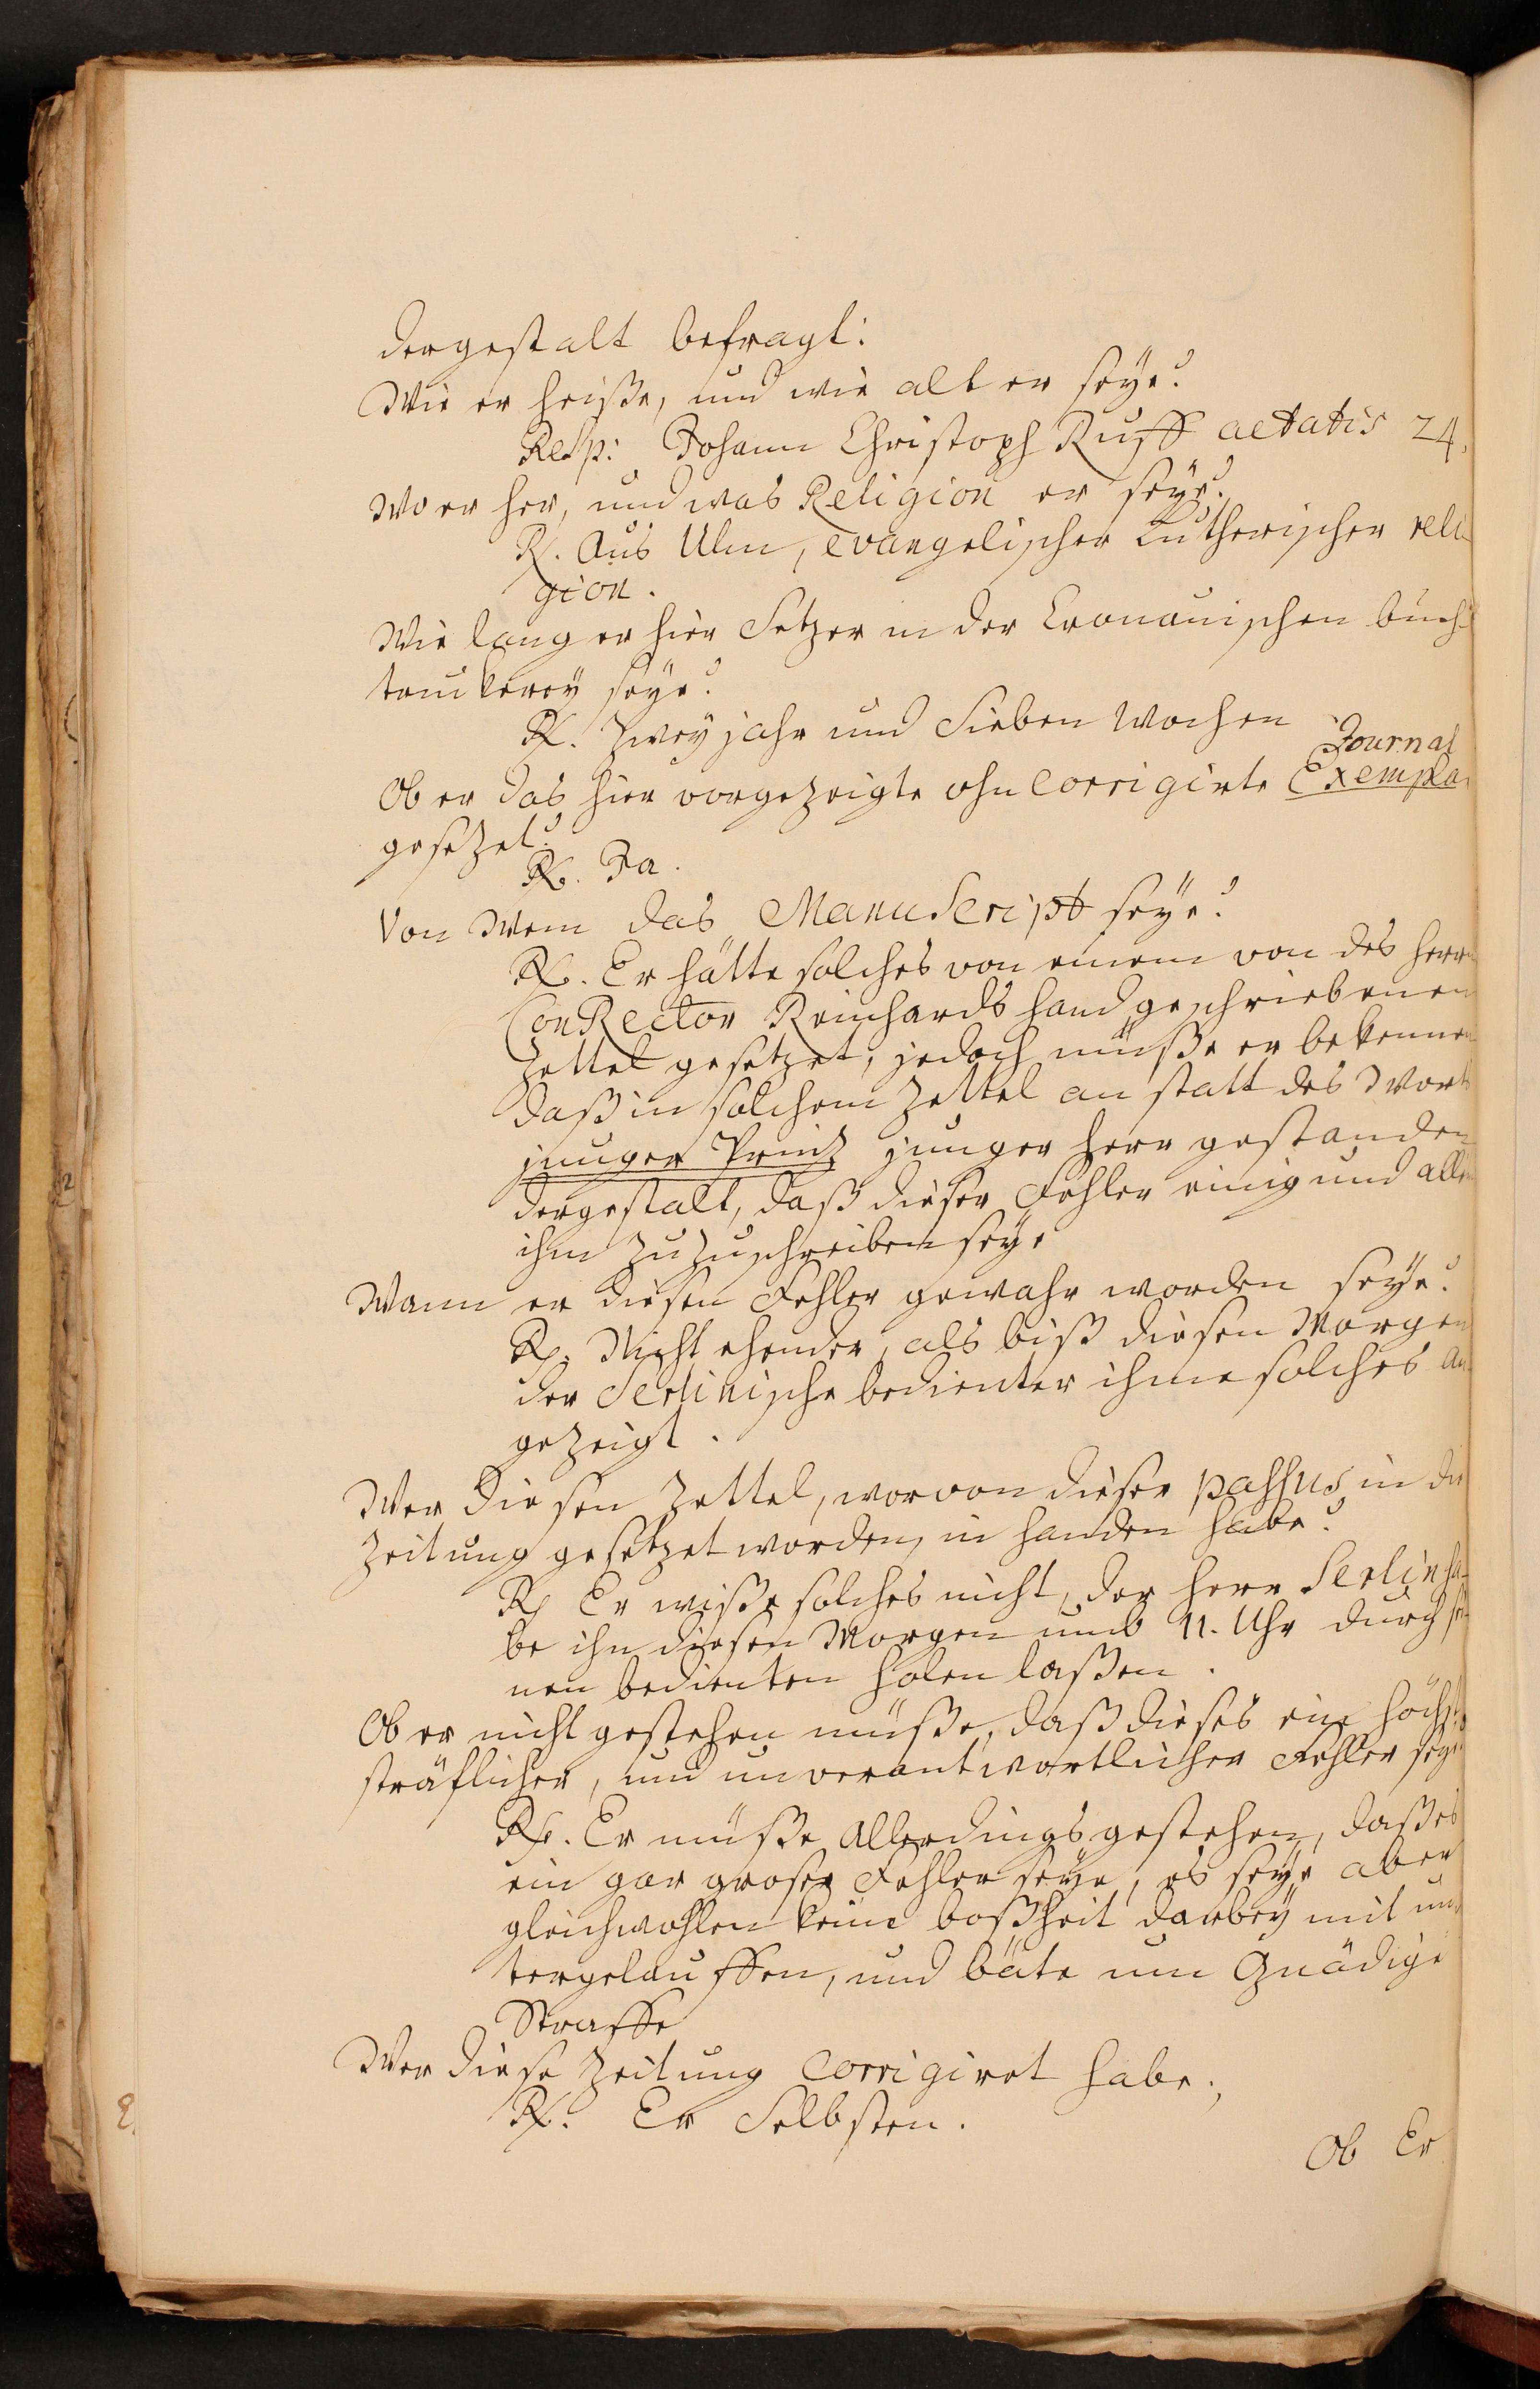 dergestalt befragt:
Wie er heiße, und wie alt er seÿe?
Resp: Johann Christoph Ruff aetatis 24.
Wo er her, und was Religion er seÿe?
R. Aus Ulm, evangelischer Lutherischer reli-
gion.
Wie lang er hier Setzer in der Cronauischen buch-
truckereÿ seÿe?
R. Zweÿ jahr und Sieben Wochen
Journal
Ob er das hier vorgezeigte ohn Corrigirte Exemplar
gesetzet?
R. Ja.
Von Wem das Manuscript seÿe?
R. Er hätte solches von einem von des Herrn
ConRector Reinhards hand geschriebenen
Zettel gesetzet, jedoch müße er bekennen
daß in solchem Zettel an statt des Worts
junger Printz junger Herr gestanden
dergestalt, daß dieser Fehler einig und allein
ihm zuzuschreiben seÿe
Wann er diesen Fehler gewahr worden seÿe?
R. Nicht ehender, als biß diesen Morgen
der Serlinische bediente ihme solches an-
gezeigt.
Wer diesen Zettel, worvon dieser passus in die
Zeitung gesetzet worden, in handen habe?
R. Er wiße solches nicht, der Herr Serlin ha-
be ihn diesen Morgen umb 11. Uhr durch sei-
nen bedienten holen laßen.
Ob er nicht gestehen müße, daß dieses ein höchst
sträflicher, und unverantwortlicher Fehler seÿe
R. Er müße allerdings gestehen, daß es
ein gar groser Fehler seÿe, es seÿe aber
gleichwohlen keine boßheit darbeÿ mit un-
tergelauffen, und bäte um Gnädige
Straffe
Wer diese Zeitung Corrigiret habe.
R. Er Selbsten.
Ob Er